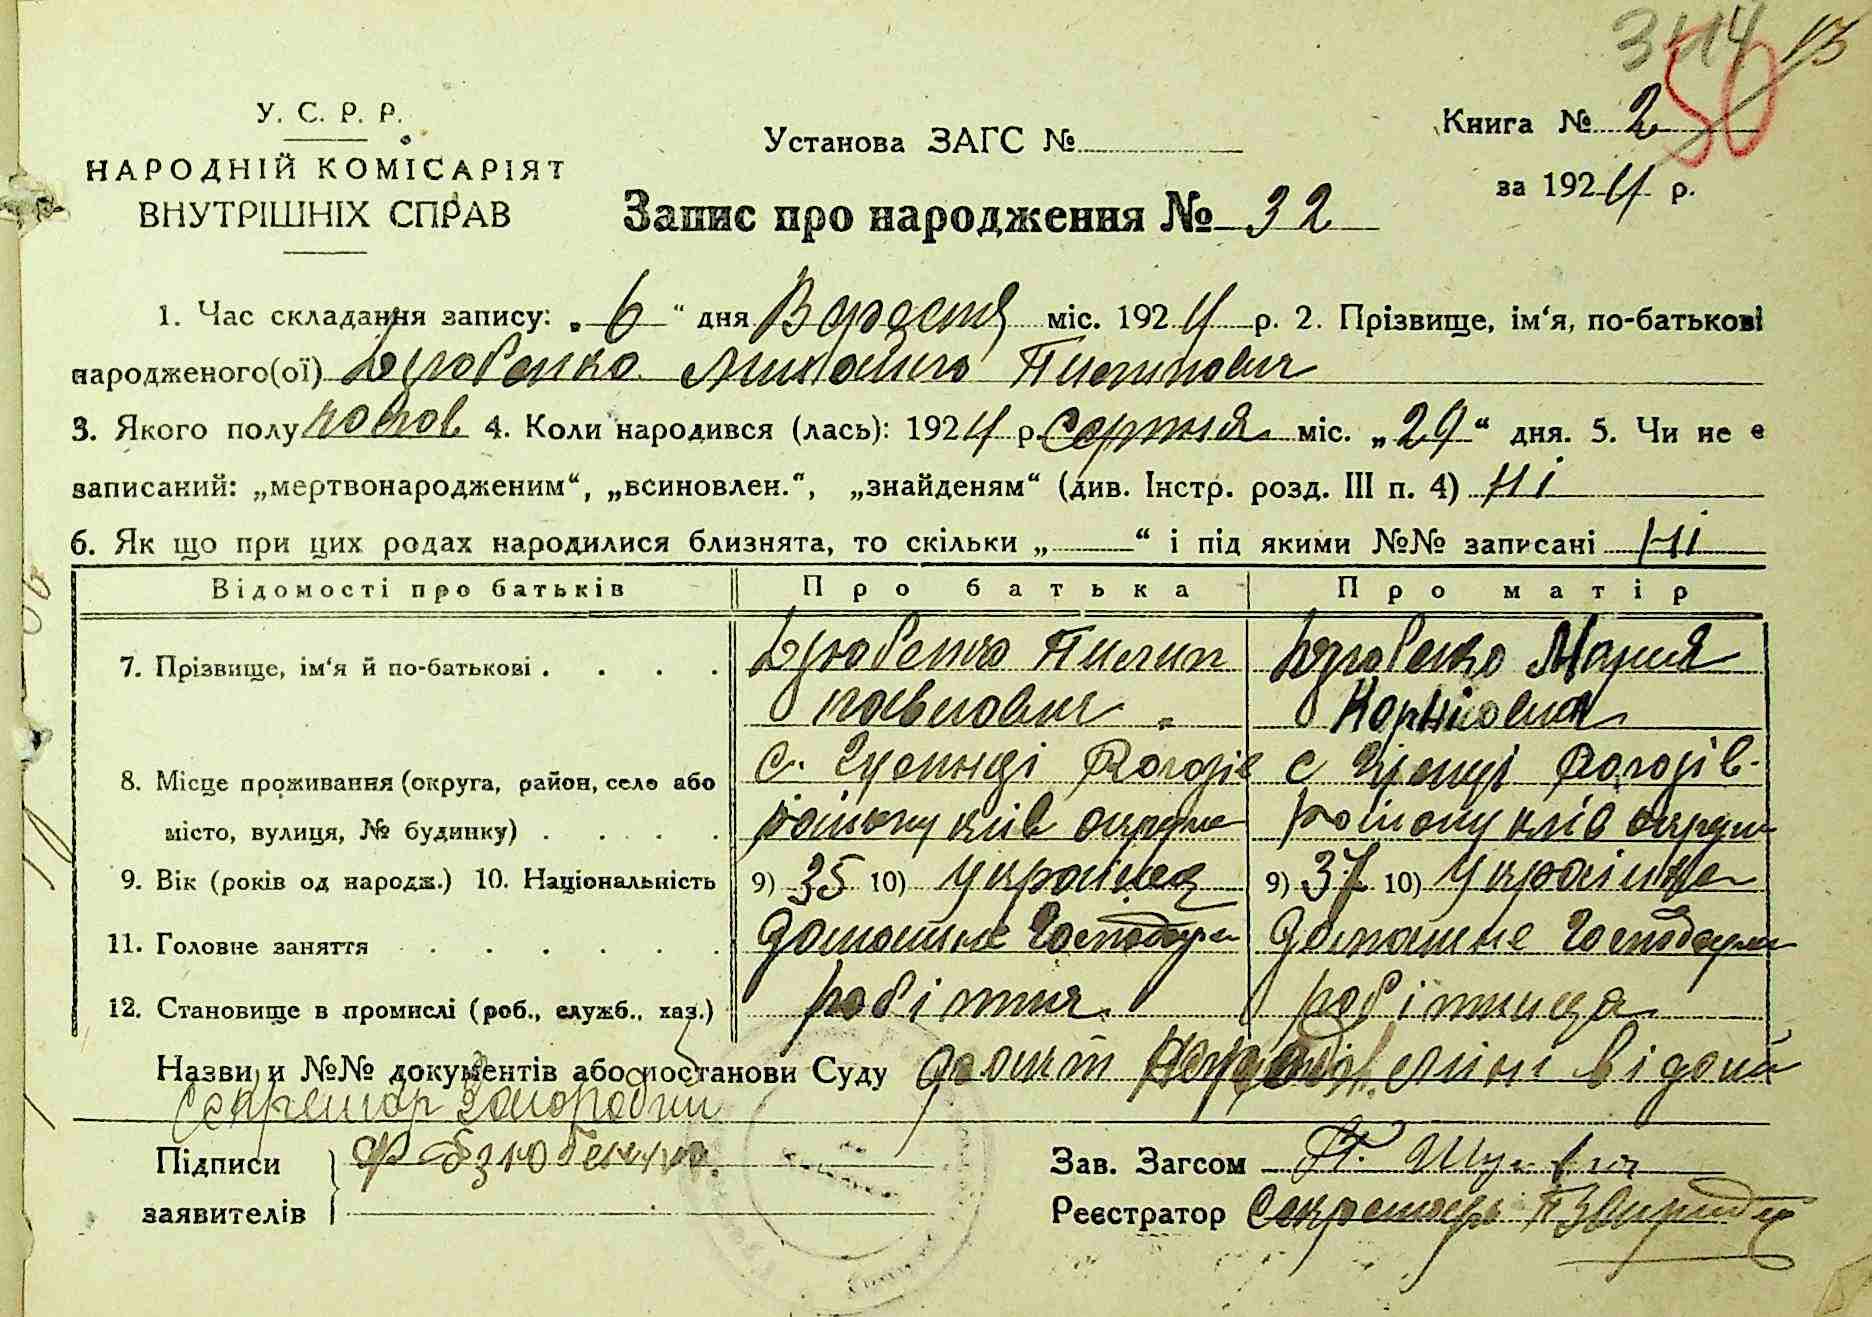 3414 13
50
У. С. Р. Р.
НАРОДНІЙ КОМІСАРІЯТ
ВНУТРІШНІХ СПРАВ
Установа ЗАГС №
Книга № 2
за 1924 р.
Запис про народження № 32
1. Час складання запису: „ 6 “ дня Вересня міс. 1924 р. 2. Прізвище, ім‘я, по-батькові
народженого(ої) Дзюбенко Михайло Пилипович
3. Якого полу 4. Коли народився (лась): 1924 р. Серпня міс. „29“ дня. 5. Чи не є
записаний: „мертвонародженим“, „всиновлен.“, „знайденям“ (див. Інстр. розд. III п. 4) Ні
6. Як що при цих родах народилися близнята, то скільки „ “ і під якими №№ записані Ні
Відомості про батьків Про батька Про матір
7. Прізвище, ім‘я й по-батькові . . . . Дзюбенко Пилип Дзюбенко Мария
павлович
8. Місце проживання (округа, район, село або с. с
місто, вулиця, № будинку) . . . . району київ округи району київ округи
9. Вік (років од народж.) 10. Національність 9) 35 10) Українец 9) 37 10) Українка
11. Головне заняття . . . . . . Домашнє Господар Домашнє Господар
12. Становище в промислі (роб., служб., хаз.) робітник робітниця
Назви и №№ документів або постанови Суду
Секретар
Підписи Ф Дзюбенко Зав. Загсом П.
заявителів Реєстратор Секретарь